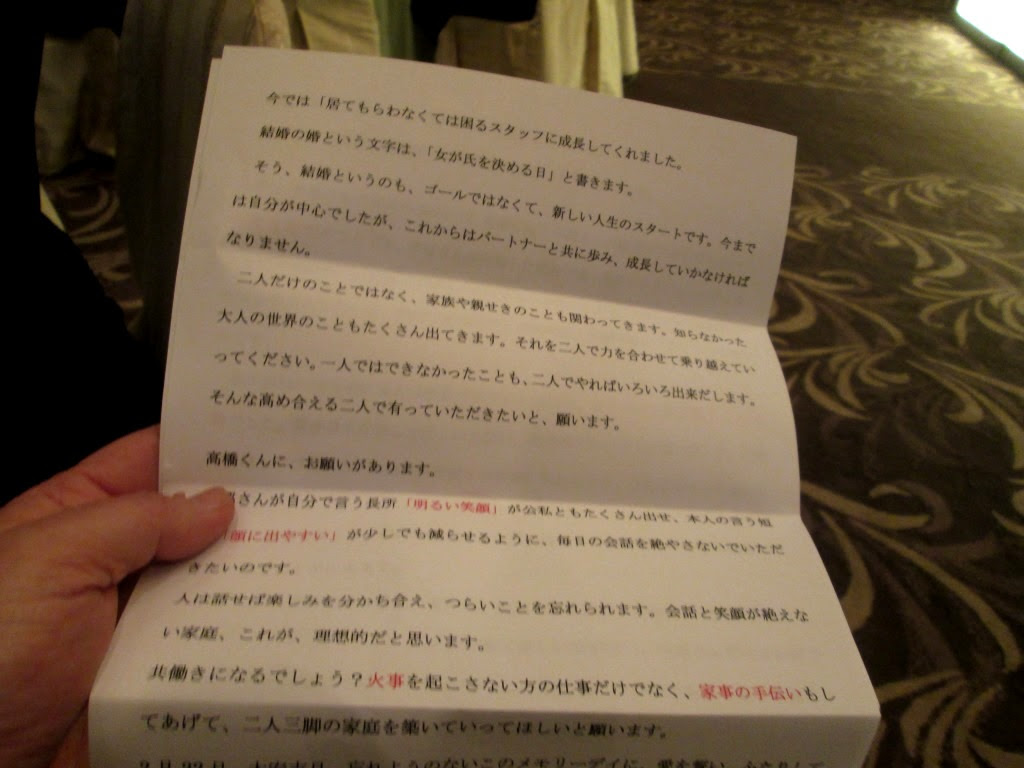 今では「居てもらわなくては困るスタッフに成長してくれました。
結婚の婚という文字は、「女が氏を決める日」と書きます。
そう、結婚というのも、ゴールではなくて、新しい人生のスタートです。今まで
は自分が中心でしたが、これからはパートナーと共に歩み、成長していかなければ
なりません。
二人だけのことではなく、家族や親せきのことも関わってきます。知らなかった
大人の世界のこともたくさん出てきます。それを二人で力を合わせて乗り越えてい
ってください。一人ではできなかったことも、二人でやればいろいろ出来だします。
そんな高め合える二人で有っていただきたいと、願います。
高橋くんに、お願いがあります。
さんが自分で言う長所「明るい笑顔」が公私ともたくさん出せ、本人の言う短
「顔に出やすい」が少しでも減らせるように、毎日の会話を絶やさないでいただ
きたいのです。
人は話せば楽しみを分かち合え、つらいことを忘れられます。会話と笑顔が絶えな
い家庭、これが、理想的だと思います。
共働きになるでしょう?火事を起こさない方の仕事だけでなく、家事の手伝いもし
てあげて、二人三脚の家庭を築いていってほしいと願います。
忘れようのないこのメモリーデイに、